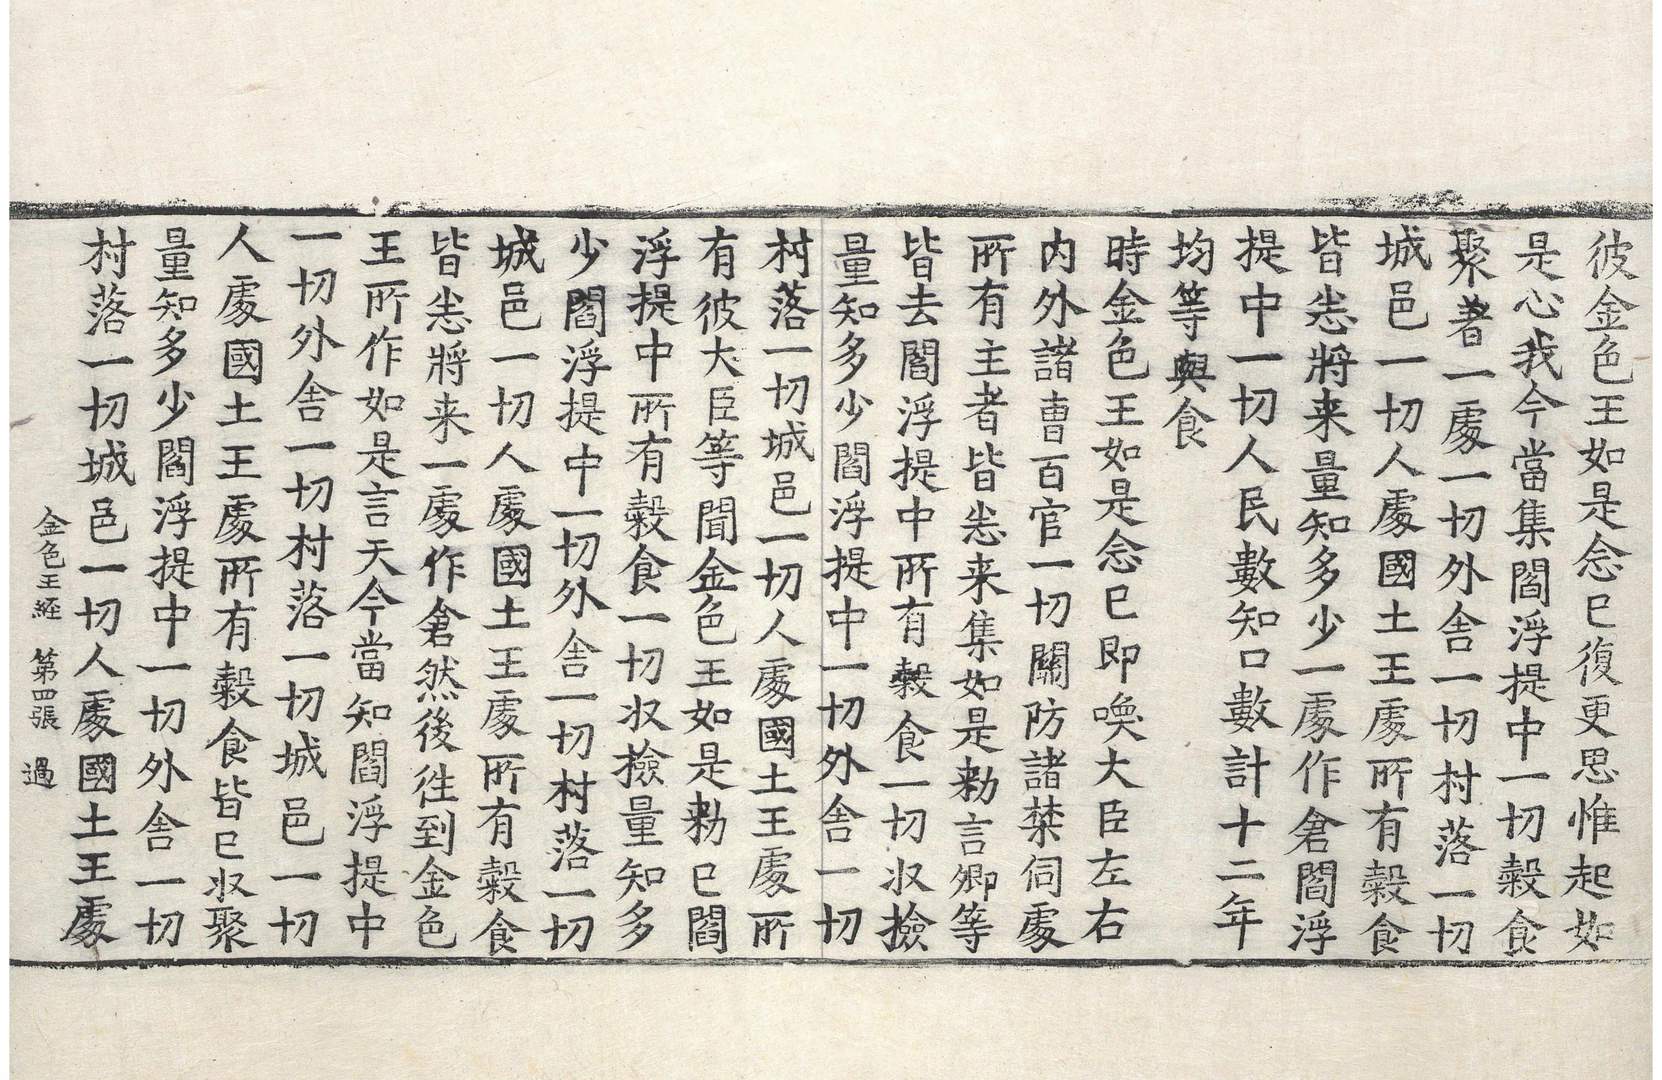 彼金色王如是念已復更思惟起如
是心我今當集閻浮提中一切穀食
聚著一處一切外舎一切村落一切
城邑一切人處國土王處所有穀食
皆悉將来量知多少一處作倉閻浮
提中一切人民數知口數計十二年
均等與食
時金色王如是念已即喚大臣左右
内外諸曺百官一切關防諸禁伺處
所有主者皆悉来集如是勑言卿等
皆去閻浮提中所有穀食一切収撿
量知多少閻浮提中一切外舎一切
村落一切城邑一切人處國土王處所
有彼大臣等聞金色王如是勑已閻
浮提中所有穀食一切収撿量知多
少閻浮提中一切外舎一切村落一切
城邑一切人處國土王處所有穀食
皆悉將来一處作倉然後往到金色
王所作如是言天今當知閻浮提中
一切外舎一切村落一切城邑一切
人處國土王處所有穀食皆已収聚
量知多少閻浮提中一切外舎一切
村落一切城邑一切人處國土王處
金色王経 第四張 過